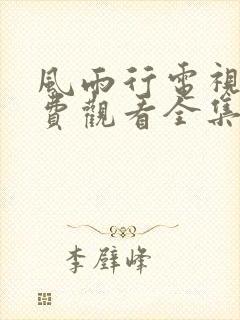 風雨行電視
費觀看全集
李璧峰